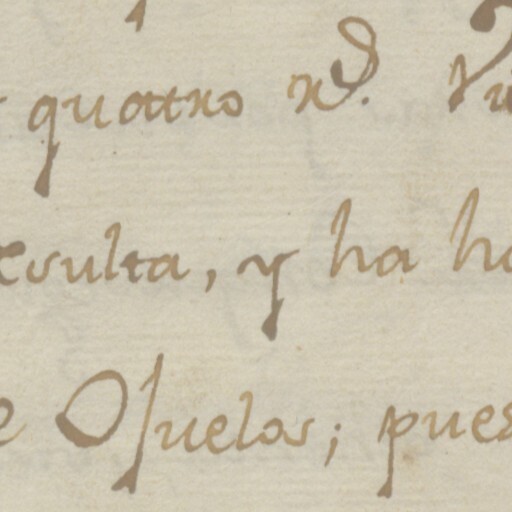 quatro rd. Vi
xsulta, y ha ha
e Ojuelos; pues